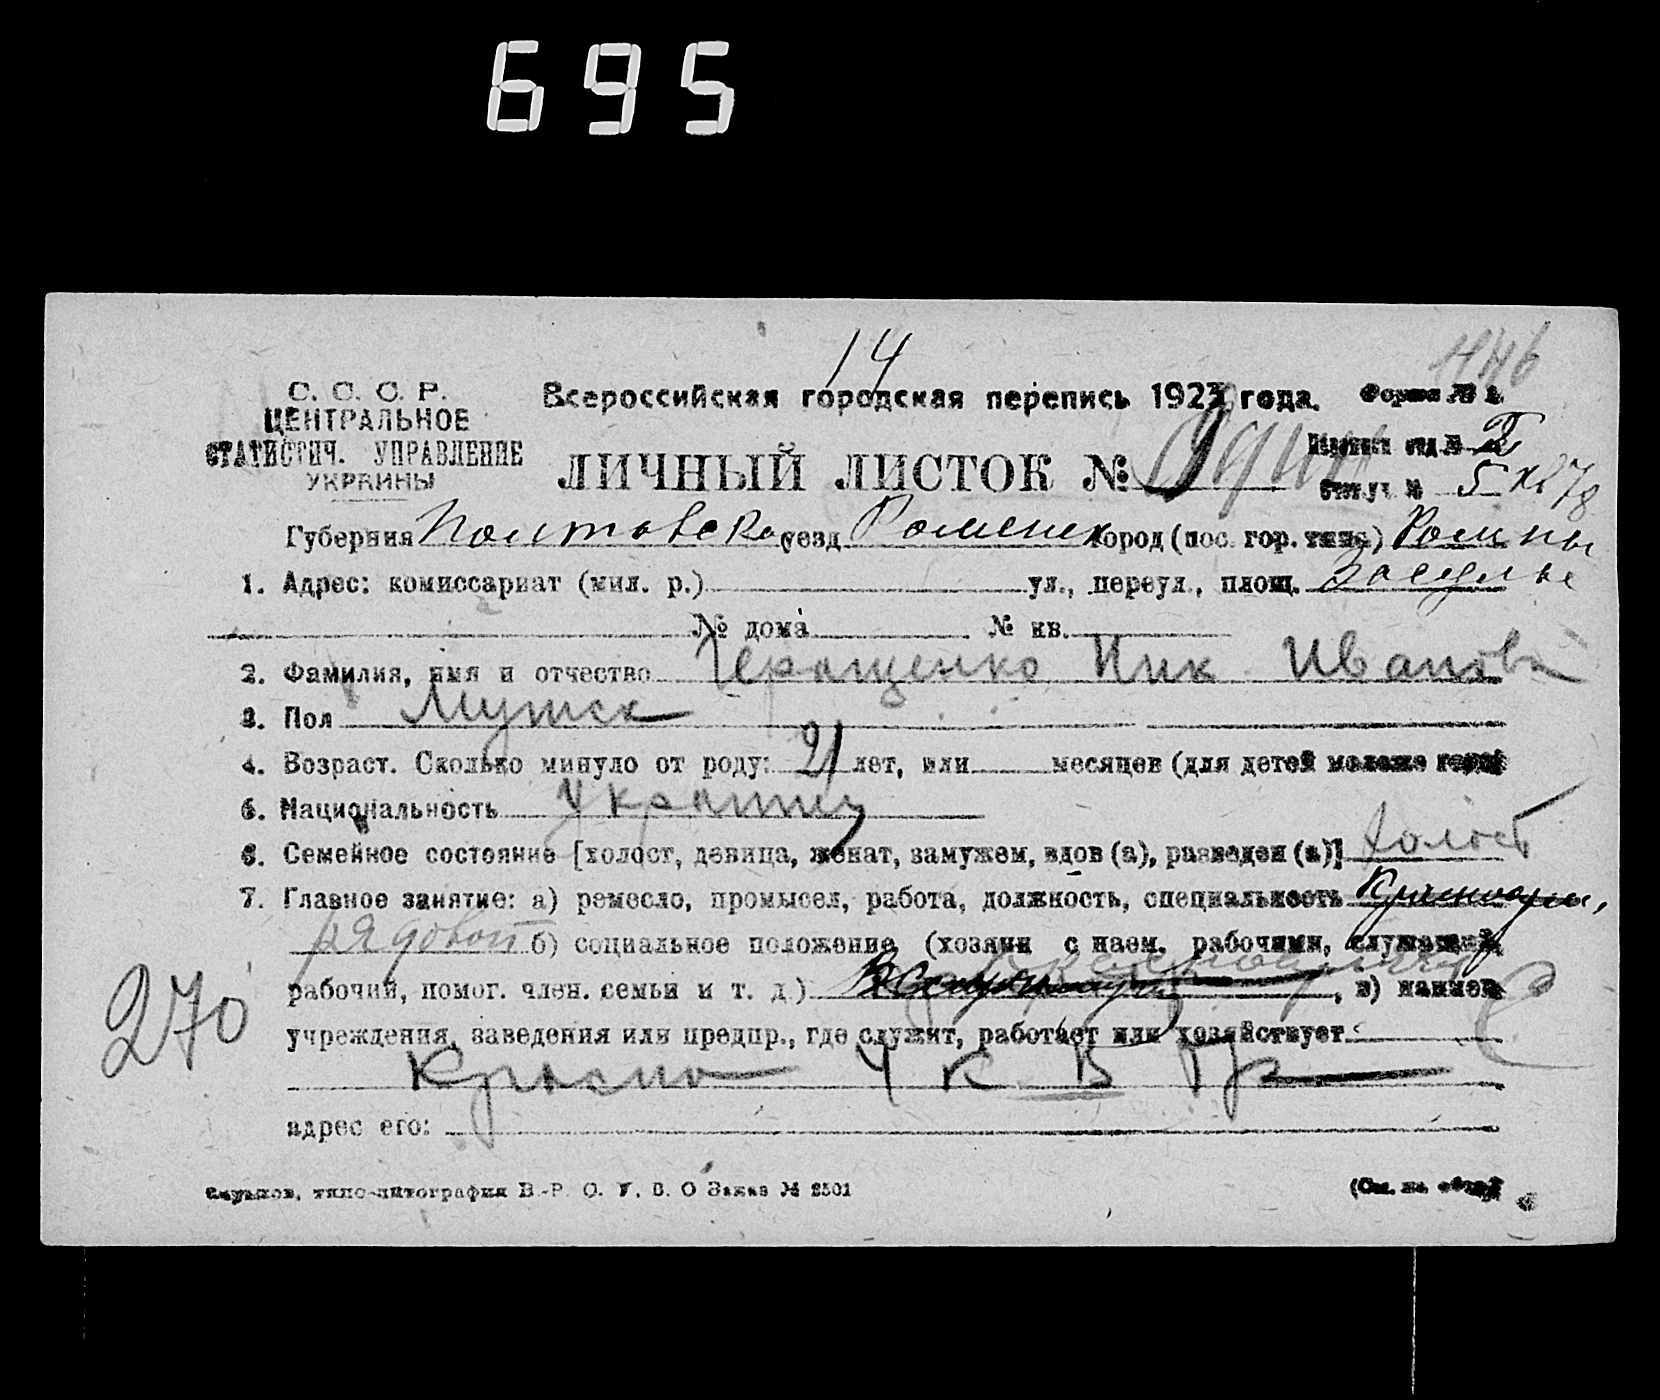 695
14
446
С. С. С. Р.
ЦЕНТРАЛЬНОЕ
СТАТИСТИЧ. УПРАВЛЕНИЕ
УКРАИНЫ
Всероссийская городская перепись 1923 года.
Форма № 1.
ЛИЧНЫЙ ЛИСТОК №
отд. №
№ 5
Губерния Полтавская уезд Роменск город (пос. гор. типа) Ромны
1. Адрес: комиссариат (мил. р.) ул., переул., площ. Засулье
№ дома № кв.
2. Фамилия, имя и отчество Геращенко Ник Иванов
3. Пол Мужск
4. Возраст. Сколько минуло от роду: 21 лет, или месяцев (для детей моложе года)
5. Национальность Украинц
6. Семейное состояние [холост, девица, женат, замужем, вдов (а), разведен (а)] холост
7. Главное занятие: а) ремесло, промысел, работа, должность, специальность
рядовой б) социальное положение (хозяин с наем. рабочими, служащий,
270
рабочий, помог. член. семьи и т. д.) , в) наимен.
учреждения, заведения или предпр., где служит, работает или хозяйствует:
адрес его:
типо-литография В.-Р. О. У. В. О Заказ № 2501
(См. на обор.)